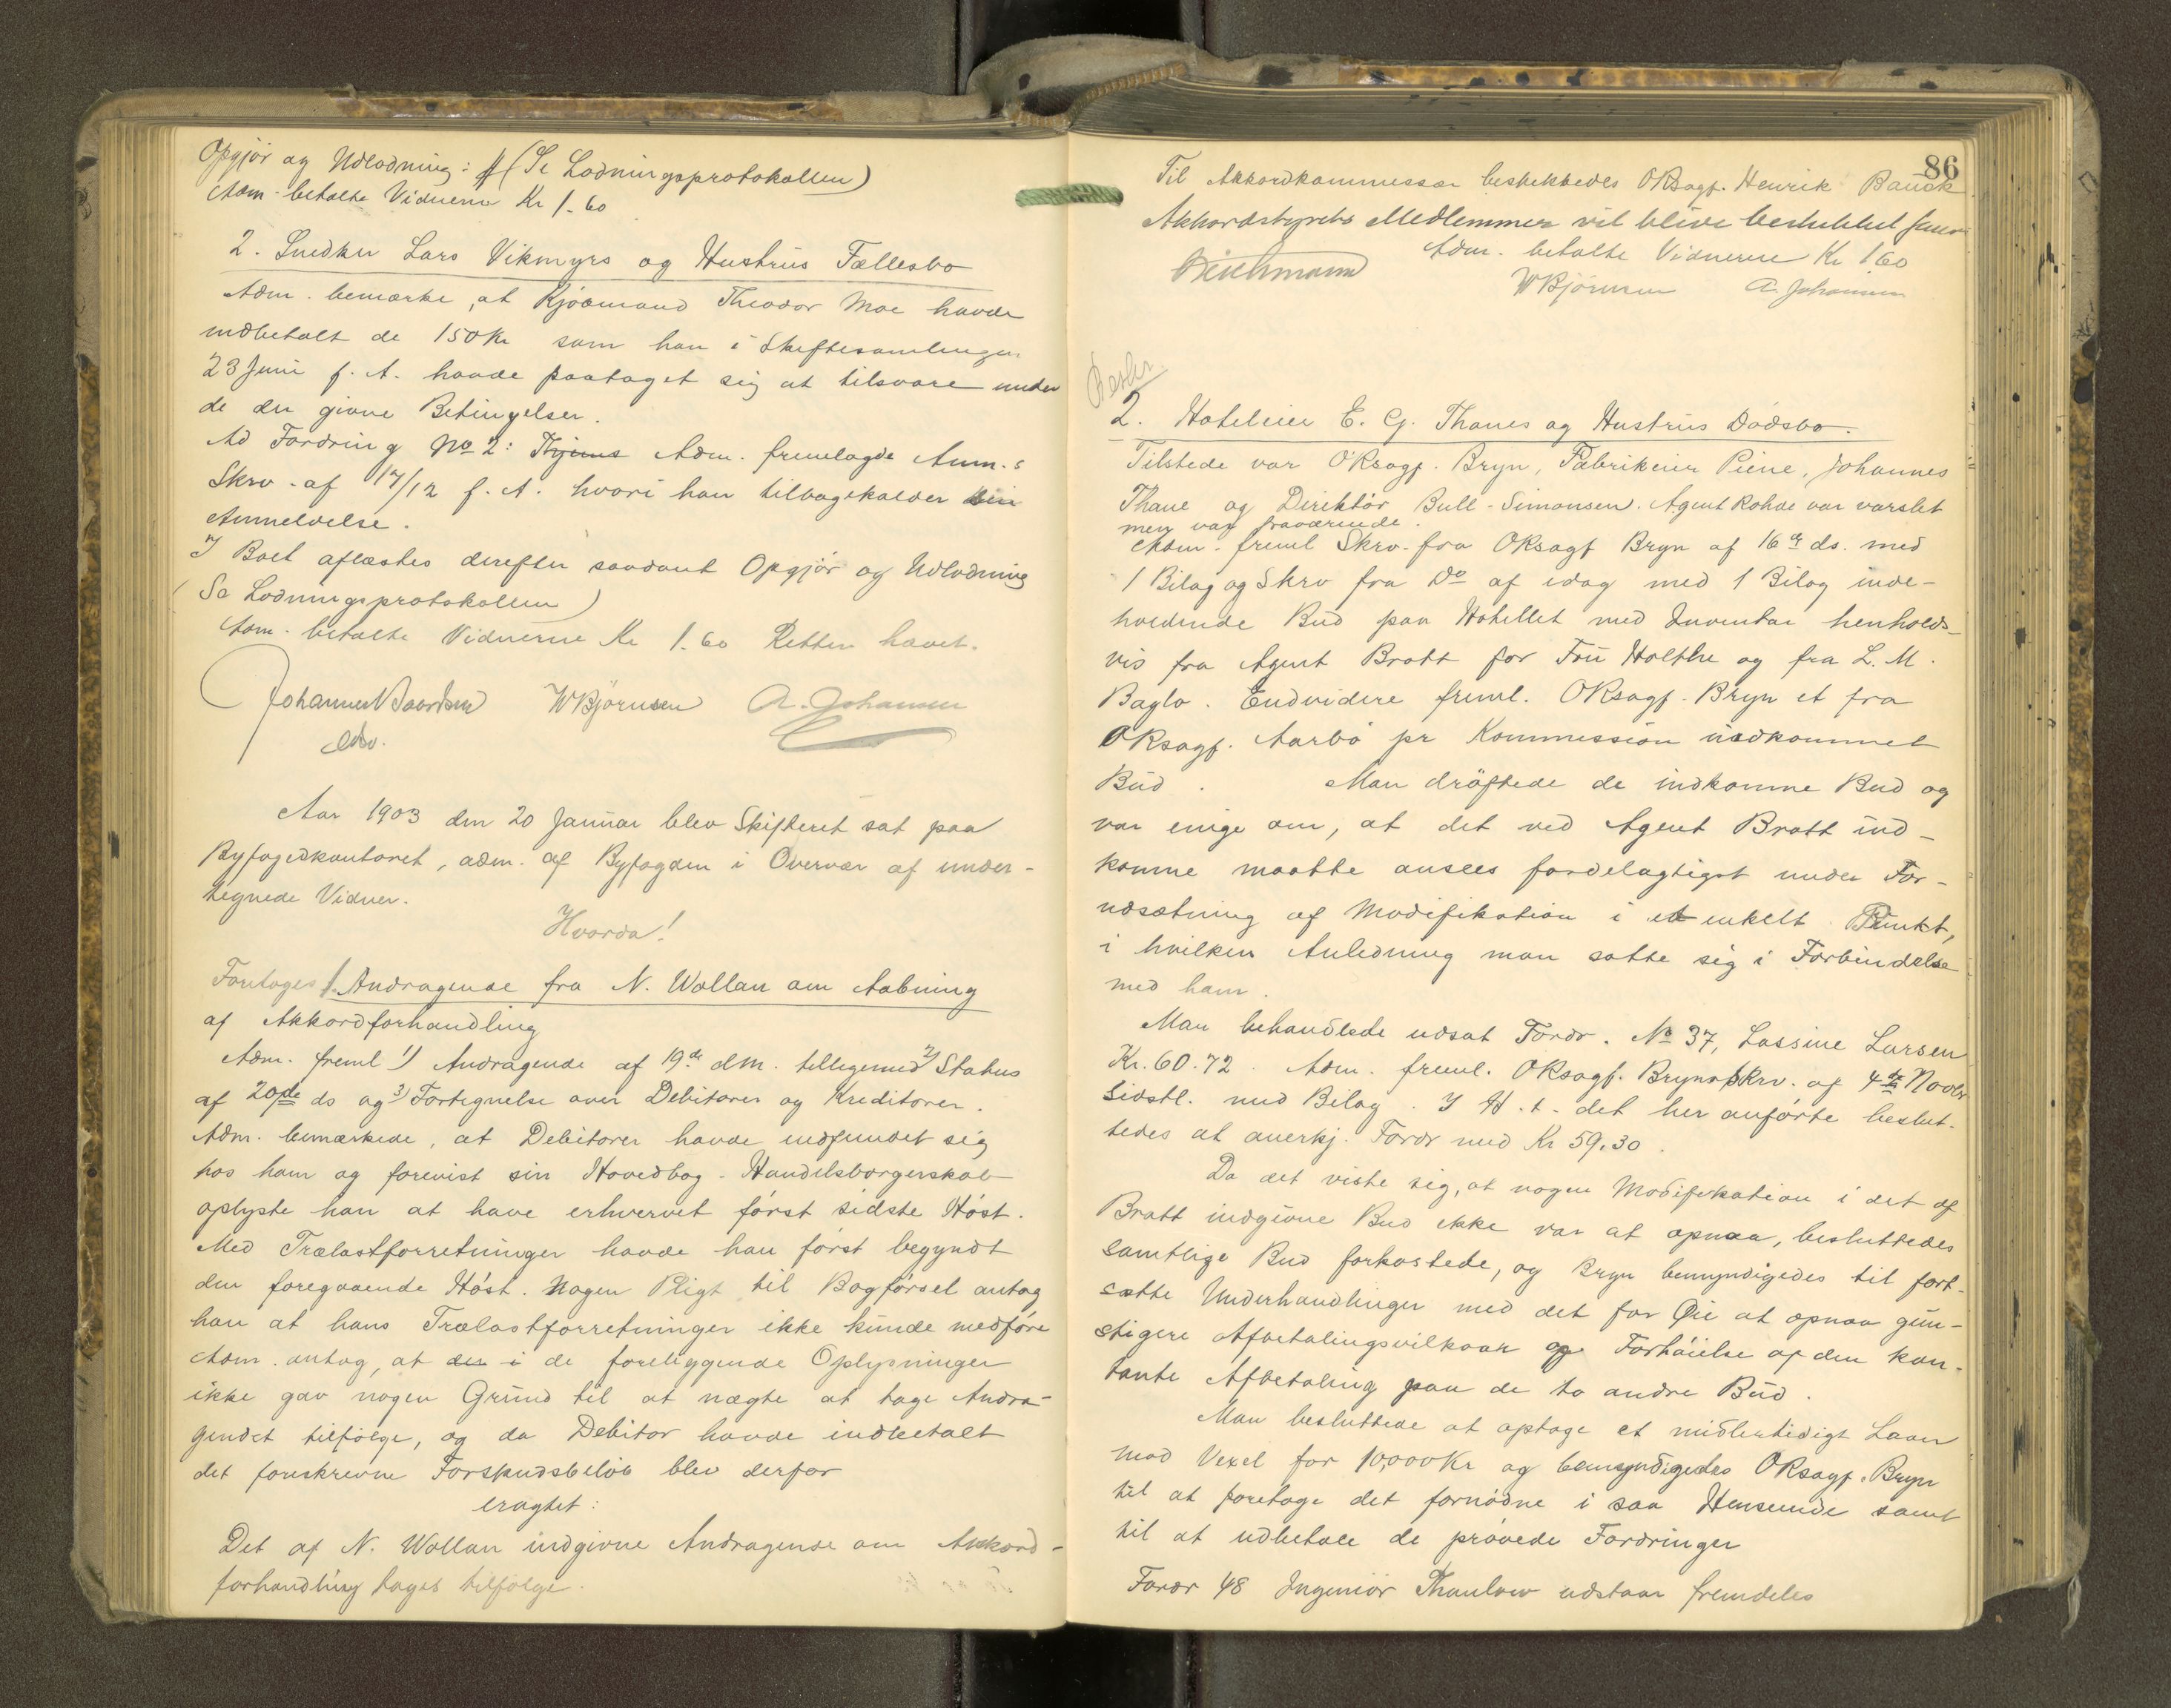 Opgjør og Udlodning: (Se Lodningsprotokollen)
Adm. betalte Vidnerne Kr 1.60
2. Snedker Lars Vikmyrs og Hustrüs Fællesbo
Adm. bemærke, at Kjøbmand Theodor Moe havde
indbetalt de 150 Kr som han i Skiftesamlingen
23 Juni f. A. havde paataget sig at tilsvare under
de der givne Betingelser.
Ad Fordring No 2: Adm. fremlagde Anm.s
Skrv. af 17/12 f. A. hvori han tilbagekalder sin
Anmeldelse.
I Boet aflæstes derefter saadant Opgjør og Udlodning
(Se Lodningsprotokollen)
Adm. betalte Vidnerne Kr 1.60 Retten hævet.
WBjørnsen A. Johansen
Aar 1903 den 20 Januar blev Skifteret sat paa
Byfogedkontoret, adm. af Byfogden i Overvær af under-
tegnede Vidner.
Hvorda!
Foretoges 1. Andragende fra N. Wollan om Aabning
af Akkordforhandling
Adm. freml 1) Andragende af 19de dm. tilligemed 2) Status
af 20de ds og 3) Fortegnelse over Debitorer og Kreditorer.
Adm. bemærkede, at Debitoren havde indfundet sig
hos ham og forevist sin Hovedbog. Handelsborgerskab
oplyste han at have erhvervet først sidste Høst.
Med Trælastforretninger havde han først begyndt
den foregaaende Høst. Nogen Pligt til Bogførsel antog
han at hans Trælastforretninger ikke kunde medføre
Adm. antog, at de foreliggende Oplysninger
ikke gav nogen Grund til at nægte at tage Andra-
gendet tilfølge, og da Debitor havde indbetalt
det foreskrevne Forskudsbeløb blev derfor
eragtet:
Det af N. Wollan indgivne Andragende om Akkord-
forhandling tages tilfølge.
86
Til Akkordkommissær beskikkedes ORsagf. Henrik Bauck
Akkordstyrets Medlemmer vil blive beskikket senere
Adm. betalte Vidnerne Kr 1.60
WBjørnsen A. Johansen
2. Hoteleier E. G. Thanes og Hustrüs Dødsbo.
Tilstede var ORsagf. Bryn, Fabrikeier Piene, Johannes
Thane og Direktør Bull-Simonsen. Agent Rohde var varslet
men var fraværende.
Adm. freml Skrv. fra ORsagf Bryn af 16de ds. med
1 Bilag og Skrv fra Do af idag med 1 Bilag inde-
holdende Bud paa Hotellet med Inventar henholds-
vis fra Agent Bratt for Frü Holthe og fra L. M.
Baglo. Endvidere freml. ORsagf. Bryn et fra
ORsagf. Aarbø pr Kommission indkommet
Bud. Man drøftede de indkomne Bud og
var enige om, at det ved Agent Bratt ind-
komne maatte ansees fordelagtigst under For-
udsætning af Modifikation i et enkelt Punkt,
i hvilken Anledning man satte sig i Forbindelse
med ham.
Man behandlede udsat Fordr. No 37, Lassine Larsen
Kr. 60.72. Adm. freml. ORsagf. Bryns Skrv. af 4de Novbr
sidstl. med Bilag. I H. t. det her anførte beslut-
tedes at anerkj. Fordr med Kr 59.30.
Da det viste sig, at nogen Modifikation i det af
Bratt indgivne Bud ikke var at opnaa, besluttedes
samtlige Bud forkastede, og Bryn bemyndigedes til fort-
sætte Underhandlinger med det for Øie at opnaa gun-
stigere Afbetalingsvilkaar og Forhøielse af den kon-
tante Afbetaling paa de to andre Bud.
Man besluttede at optage et midlertidigt Laan
mod Vexel for 10,000 Kr og bemyndigedes ORsagf. Bryn
til at foretage det fornødne i saa Henseende samt
til at udbetale de prøvede Fordringer
Fordr 48 Ingeniør Thaulow udstaar fremdeles